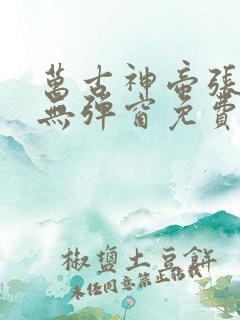 萬古神帝張
無彈窗免費
椒鹽土豆餅
未經同意禁止轉載